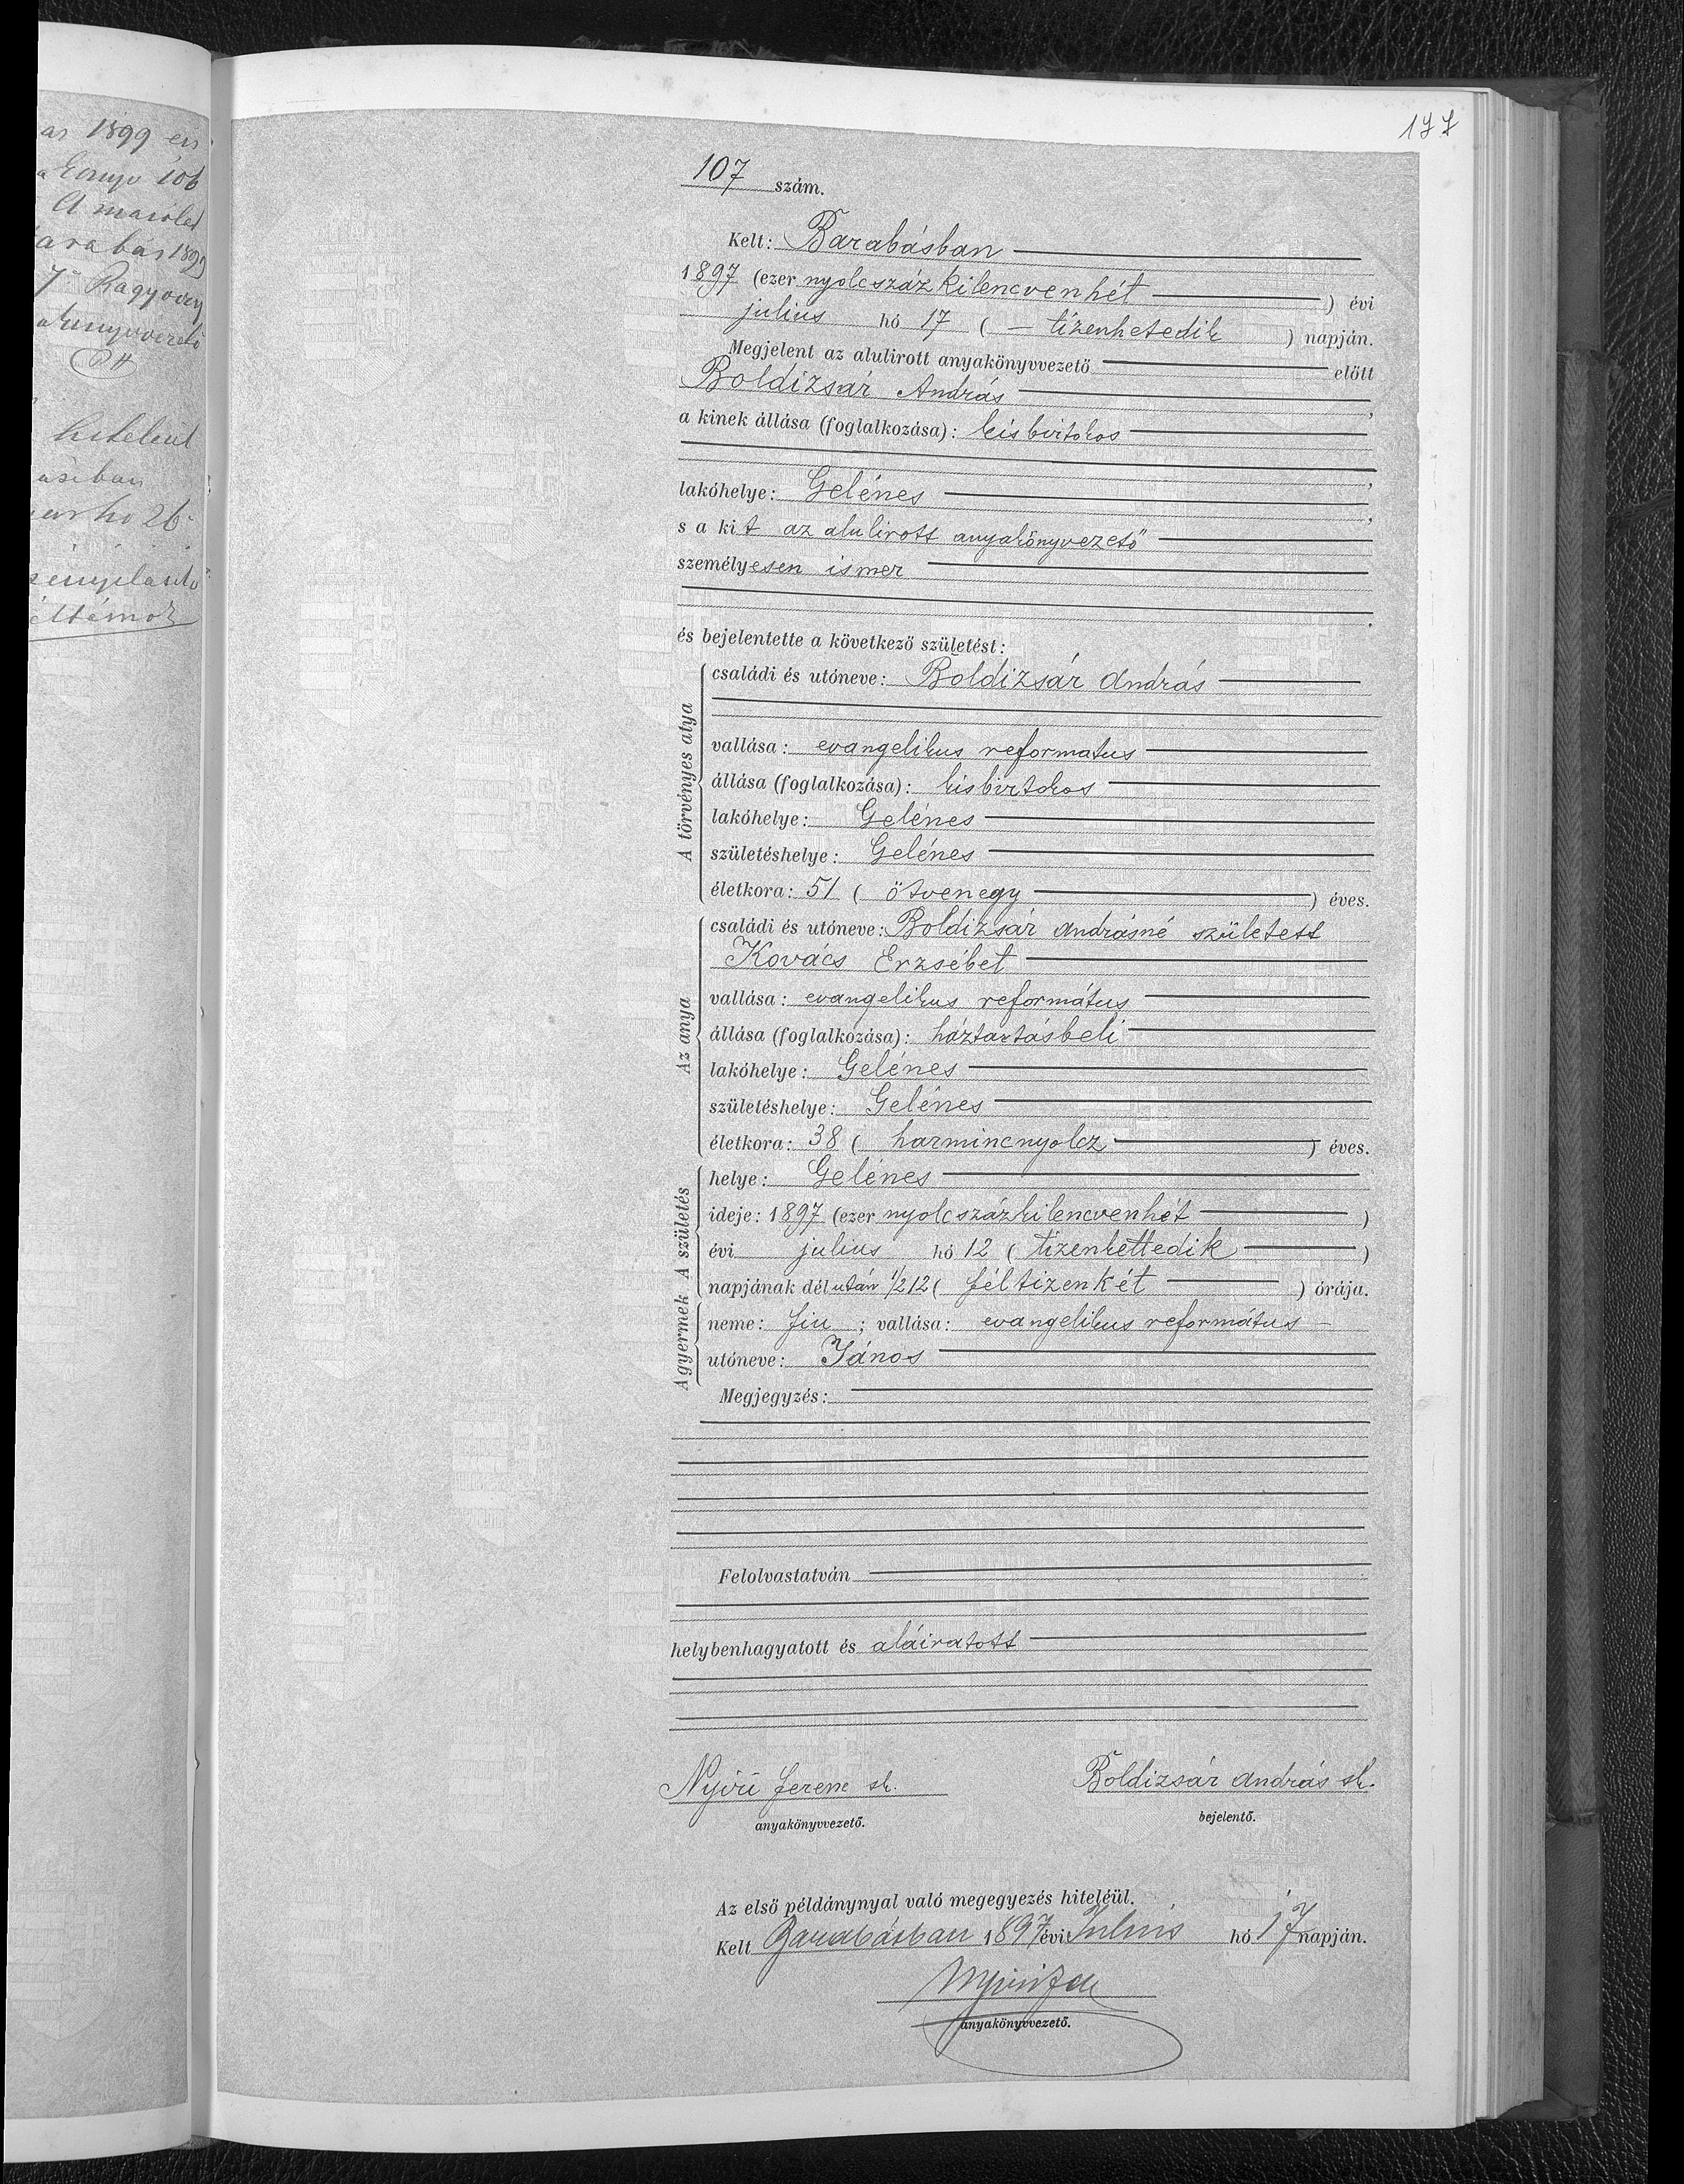 ar 1899 évi
106
A
1899
hiteleül
hó 26
177
107 szám.
Kelt: Barabásban
1897 (ezer nyolcszáz kilencvenhét) évi
julius hó 17 ( tizenhetedik ) napján.
Megjelent az alulirott anyakönyvvezető előtt
Boldizsár András,
a kinek állása (foglalkozása): kisbirtokos
lakóhelye: Gelénes,
s a kit az alulirott anyakönyvezető
személyesen ismer
és bejelentette a következő születést:
A törvényes atya
családi és utóneve: Boldizsár András
vallása: evangelikus reformatus
állása (foglalkozása): kisbirtokos
lakóhelye: Gelénes
születéshelye: Gelénes
életkora: 51 ( ötvenegy ) éves.
Az anya
családi és utóneve: Boldizsár Andrásné született
Kovács Erzsébet
vallása: evangelikus református
állása (foglalkozása): háztartásbeli
lakóhelye: Gelénes
születéshelye: Gelénes
életkora: 38 ( harmincnyolcz ) éves.
A születés
helye: Gelénes
ideje: 1897 (ezer nyolcszázkilencvenhét )
évi julius hó 12 ( tizenkettedik )
napjának délután ½12 ( féltizenkét ) órája.
A gyermek
neme: fiu ; vallása: evangelikus református –
utóneve: János
Megjegyzés:
Felolvastatván
helybenhagyatott és aláiratott
Nyíri Ferenc sk. Boldizsár András sk.
anyakönyvvezető. bejelentő.
Az első példánynyal való megegyezés hiteléül.
Kelt Barabásban 1897 évi Julius hó 17 napján.
anyakönyvvezető.